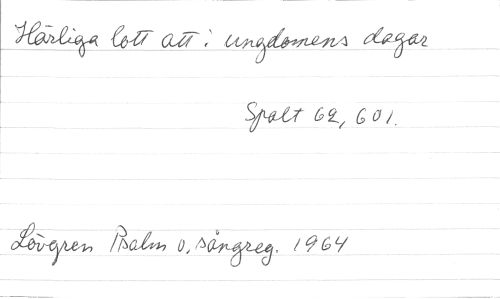 Härliga lott att i ungdomens dagar
Spalt 62, 601.
Lövgren Psalm o. sångreg. 1964